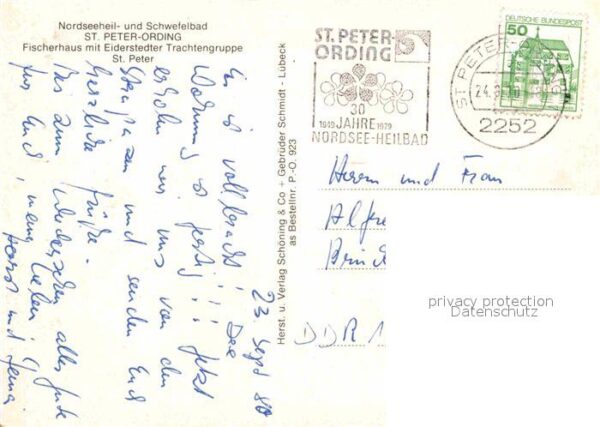 Nordseeheil- und Schwefelbad
ST. PETER-ORDING
Fischerhaus mit Eiderstedter Trachtengruppe
St. Peter
23. Sept 80
Es ist vollbracht! Die
Wohnung ist fertig!!! Jetzt
erholen wir uns von den
Strapazen und senden Euch
herzliche Grüße.
Bis zum Wiedersehen alles Gute
für Euch, meine Lieben
Horst und
Herst. u. Verlag Schöning & Co + Gebrüder Schmidt - Lübeck
as Bestellnr. P.-O. 923
ST. PETER-
ORDING
30
1949 JAHRE 1979
NORDSEE-HEILBAD
ST. PETER-
24.
2252
DEUTSCHE BUNDESPOST
50
Herrn und Frau
Alfre
DDR 1
privacy protection
Datenschutz